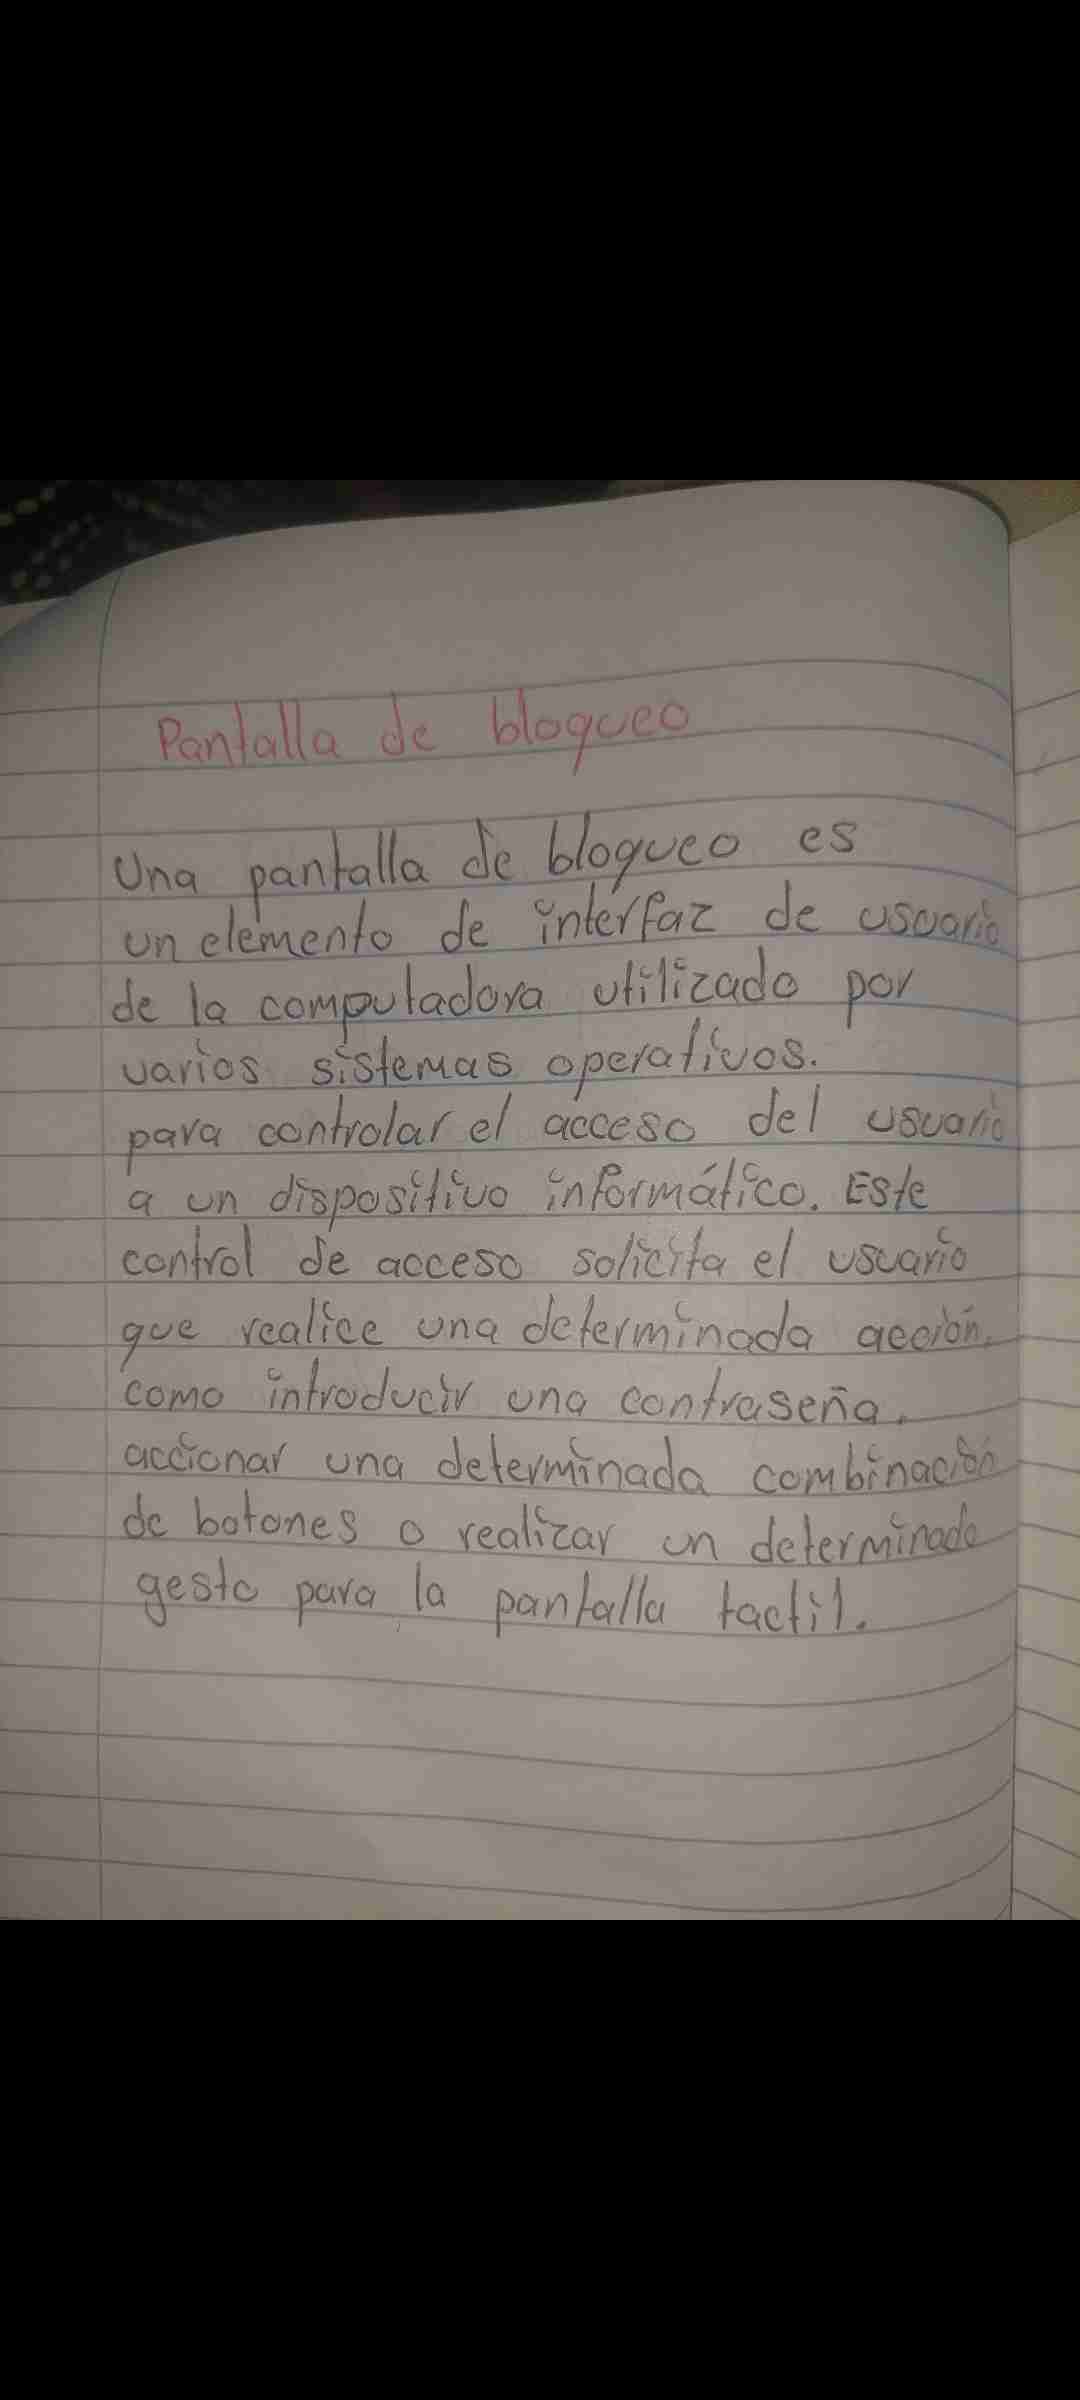 Pantalla de bloqueo
Una pantalla de bloqueo es
un elemento de interfaz de usuario
de la computadora utilizado por
varios sistemas operativos.
para controlar el acceso del usuario
a un dispositivo informático. Este
control de acceso solicita el usuario
que realice una determinada acción.
como introducir una contraseña.
accionar una determinada combinación
de botones o realizar un determinado
gesto para la pantalla tactil.